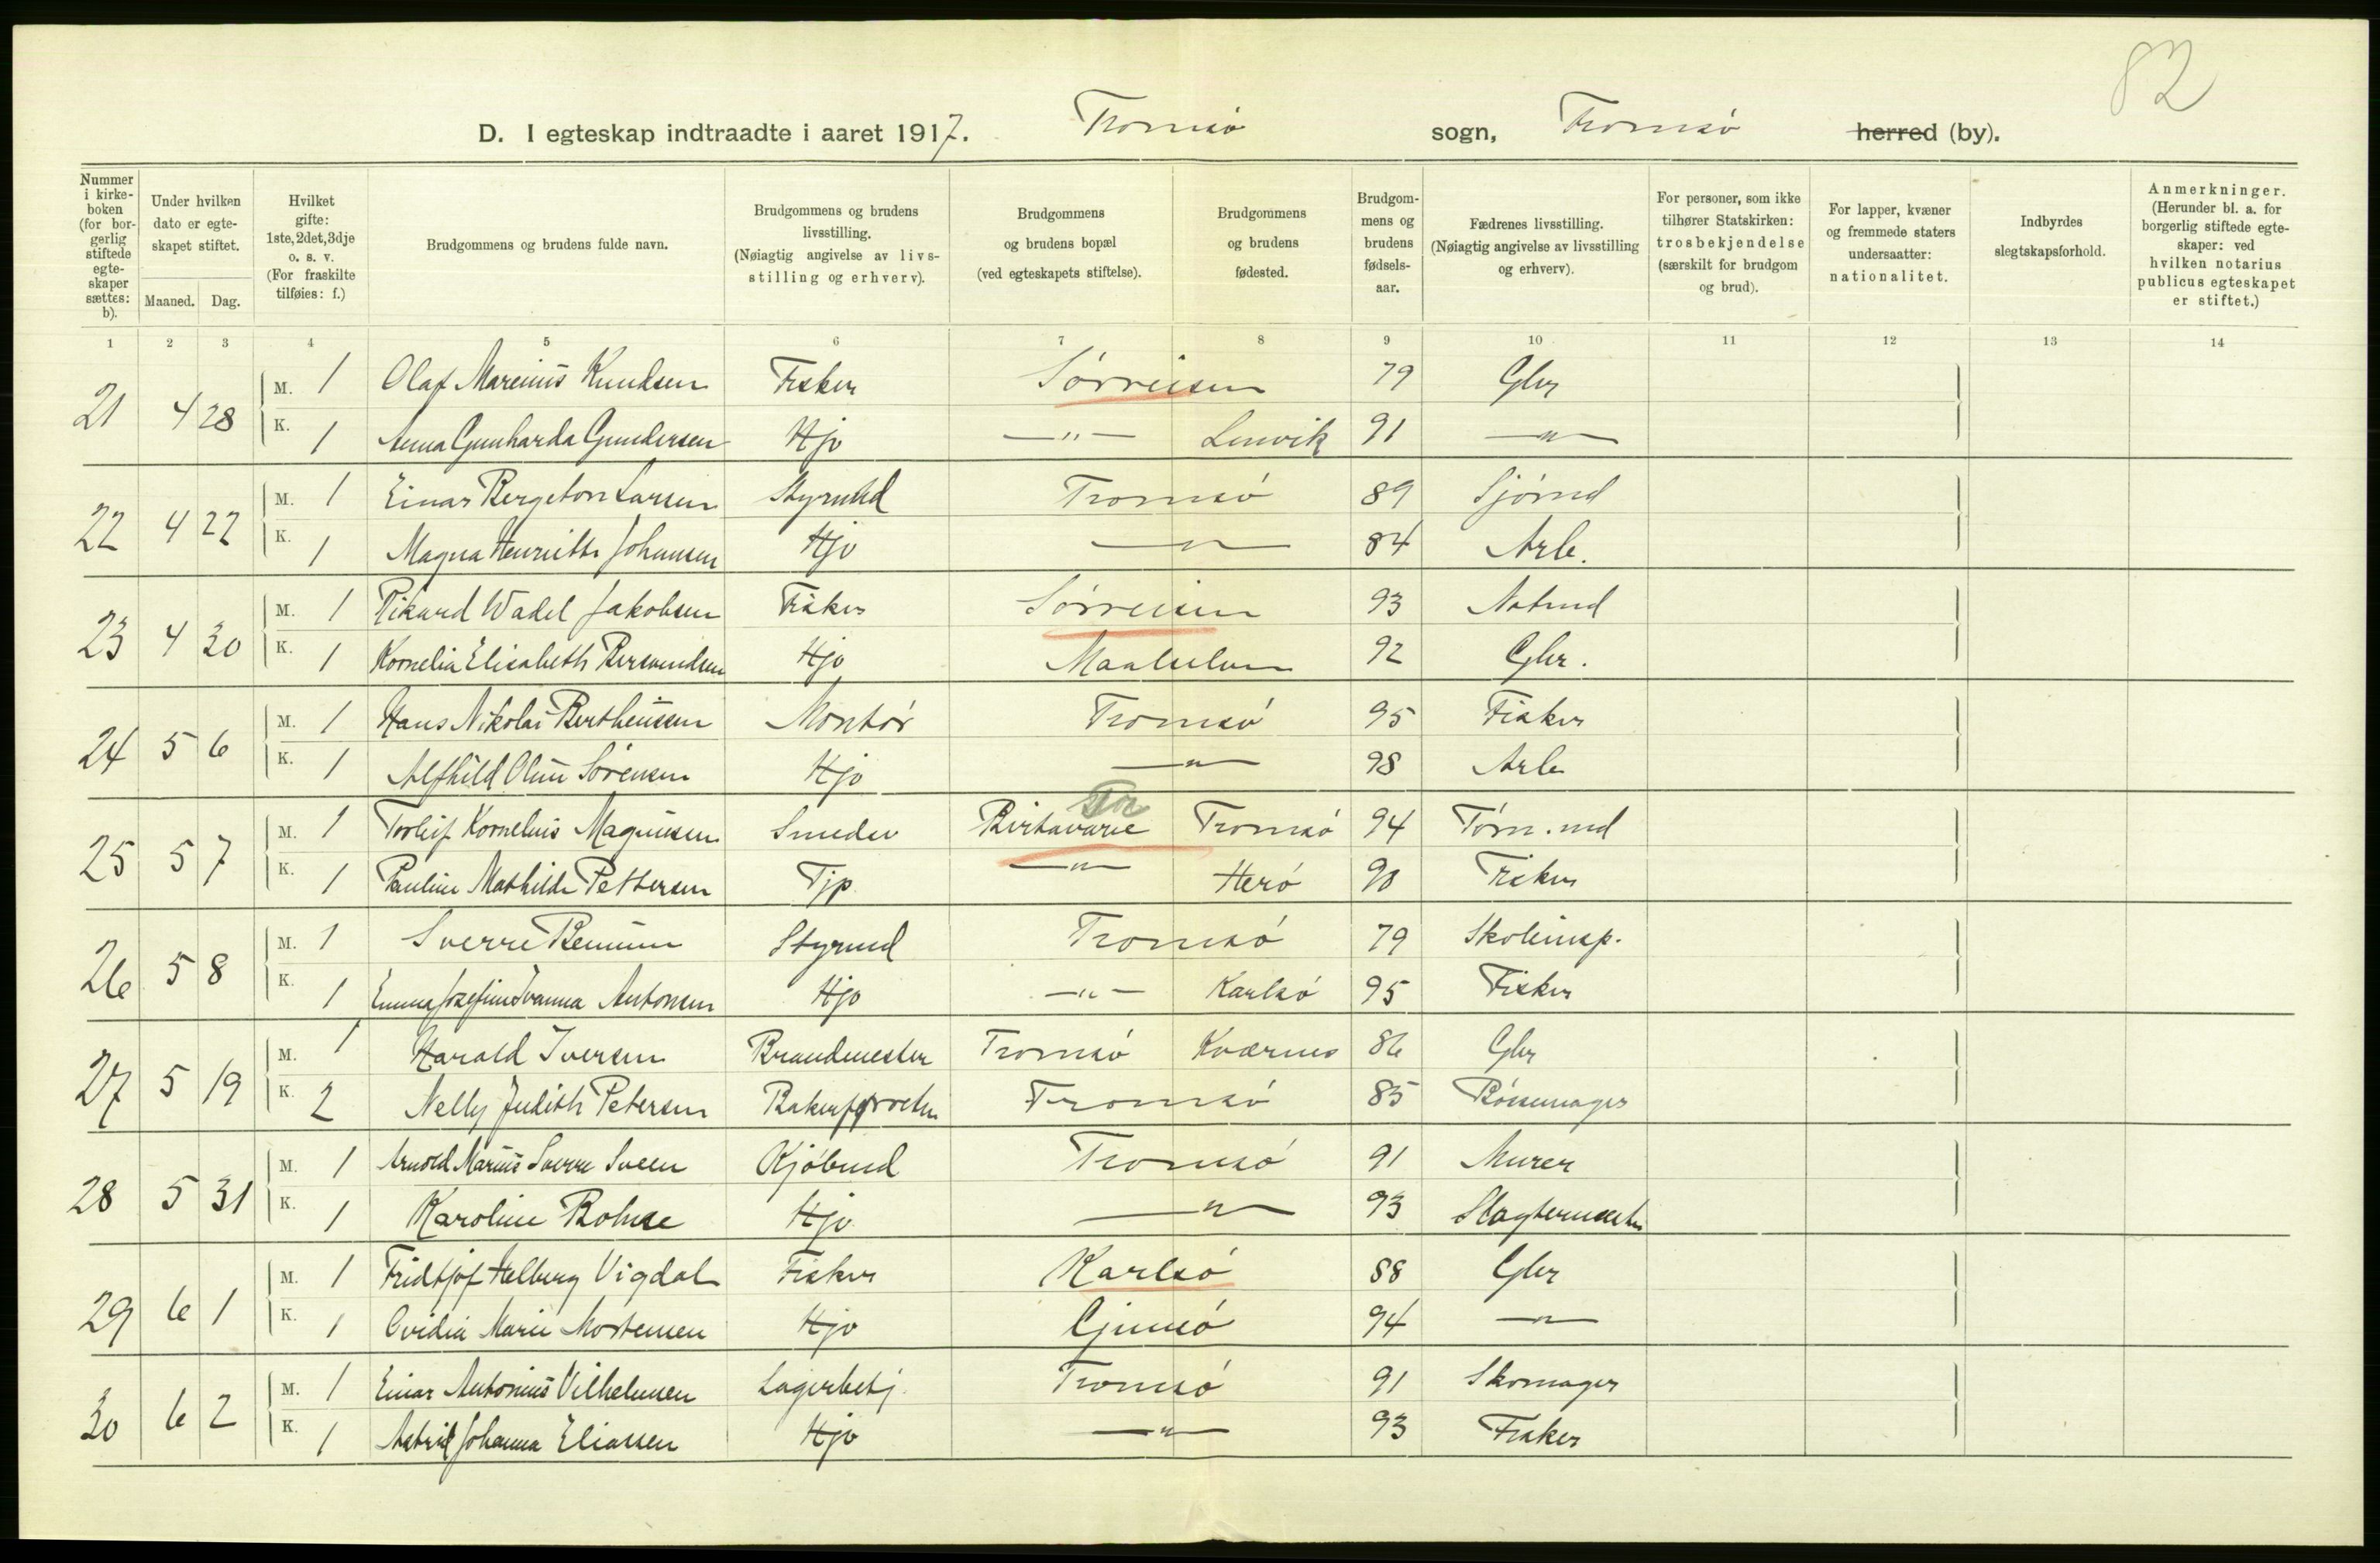 82
D. I egteskap indtraadte i aaret 1917. Tromsø sogn, Tromsø herred (by).
Nummer i kirkeboken (for borgerlig stiftede egteskaper sættes: b).
Under hvilken dato er egteskapet stiftet.
Maaned. Dag.
Hvilket gifte: 1ste, 2det, 3dje o. s. v. (For fraskilte tilføies: f.)
Brudgommens og brudens fulde navn.
Brudgommens og brudens livsstilling. (Nøiagtig angivelse av livsstilling og erhverv).
Brudgommens og brudens bopæl (ved egteskapets stiftelse).
Brudgommens og brudens fødested.
Brudgommens og brudens fødselsaar.
Fædrenes livsstilling. (Nøiagtig angivelse av livsstilling og erhverv).
For personer, som ikke tilhører Statskirken: trosbekjendelse (særskilt for brudgom og brud).
For lapper, kvæner og fremmede staters undersaatter: nationalitet.
Indbyrdes slegtskapsforhold.
Anmerkninger. (Herunder bl. a. for borgerlig stiftede egteskaper: ved hvilken notarius publicus egteskapet er stiftet.)
1 2 3 4 5 6 7 8 9 10 11 12 13 14
21 4 28 M. 1 Olaf Marenius Knudsen Fisker Sørreisen 79 Gbr
K. 1 Anna Gunharda Gundersen Hjv —"— Lenvik 91 —"—
22 4 22 M. 1 Einar Bergeton Larsen Styrmd Tromsø 89 Sjømd
K. 1 Magna Henriette Johansen Hjv —"— 84 Arb.
23 4 30 M. 1 Rikard Wadel Jakobsen Fisker Sørreisen 93 Notmd
K. 1 Kornelia Elisabeth Bersvendsen Hjv Maalselven 92 Gbr.
24 5 6 M. 1 Hans Nikolai Bertheussen Montør Tromsø 95 Fisker
K. 1 Alfhild Oline Sørensen Hjv —"— 98 Arb
25 5 7 M. 1 Torleif Kornelius Magnussen Smedsv Birtavarre Tromsø 94 Tøm.md
K. 1 Pauline Mathilde Pettersen Tjp —"— Herø 90 Fisker
26 5 8 M. 1 Sverre Benum Styrmd Tromsø 79 Skoleinsp.
K. 1 Emma Josefine Ivanna Antonsen Hjv —"— Karlsø 95 Fisker
27 5 19 M. 1 Harald Iversen Brandmester Tromsø Kværnes 86 Gbr
K. 2 Nelly Judith Petersen Tromsø 85 Bøssemager
28 5 31 M. 1 Arnold Marius Sverre Sveen Kjøbmd Tromsø 91 Murer
K. 1 Karoline Hjv —"— 93 Slagtermester
29 6 1 M. 1 Fridtjof Halberg Vigdal Fisker Karlsø 88 Gbr
K. 1 Ovidia Marie Mortensen Hjv Gjimsø 94 —"—
30 6 2 M. 1 Einar Antonius Vilhelmsen Lagerbetj. Tromsø 91 Skomager
K. 1 Astrid Johanna Eliassen Hjv —"— 93 Fisker